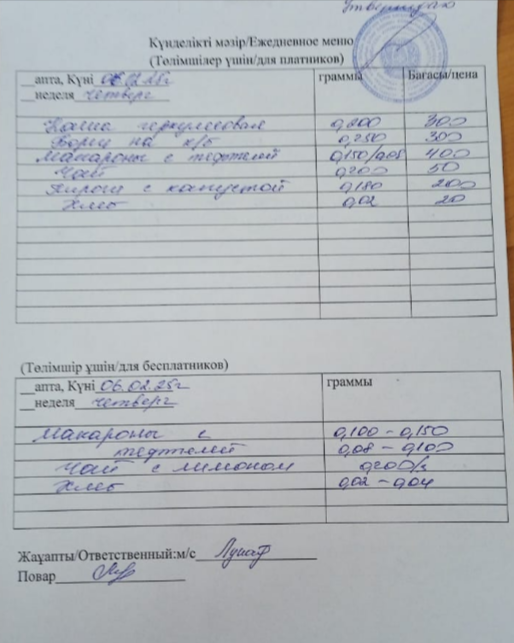 Утверждаю
Күнделікті мәзір/Ежедневное меню
(Төлімшілер үшін/для платников)
__апта, Күні 06.02.25г граммы Бағасы/цена
__неделя четверг
Каша геркулесовая 0,200 300
Борщ на к/б 0,250 300
Макароны с тефтелей 0,150/0,08 400
Чай 0,200 50
Пироги с капустой 0,180 200
Хлеб 0,02 20
(Төлімшір үшін/для бесплатников)
__апта, Күні 06.02.25г граммы
__неделя четверг
Макароны с 0,100 - 0,150
тефтелей 0,08 - 0,100
Чай с лимоном 0,200/з
Хлеб 0,02 - 0,04
Жауапты/Ответственный:м/с
Повар